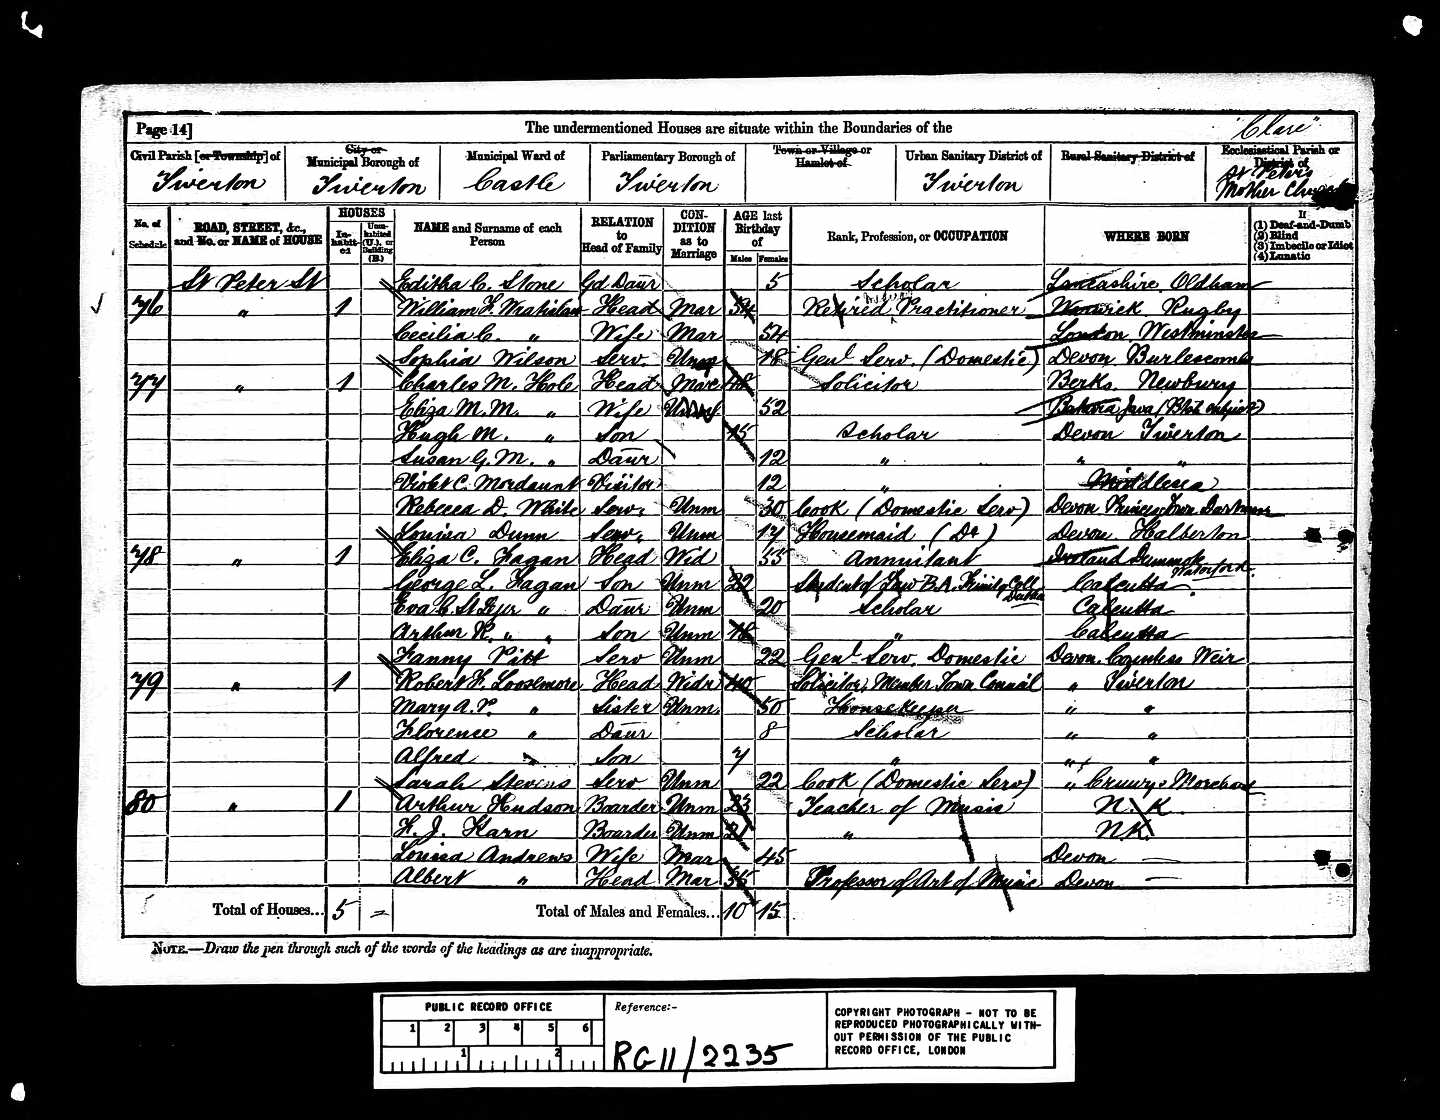 Page 14] The undermentioned Houses are situate within the Boundaries of the "Clare"
Civil Parish [or Township] of City or Municipal Borough of Municipal Ward of Parliamentary Borough of Town or Village or Hamlet of Urban Sanitary District of Rural Sanitary District of Ecclesiastical Parish or District of
Tiverton Tiverton Castle Tiverton Tiverton St Peter's Mother Church
No. of Schedule ROAD, STREET, &c., and No. or NAME of HOUSE HOUSES Inhabited Uninhabited (U.), or Building (B.) NAME and Surname of each Person RELATION to Head of Family CONDITION as to Marriage AGE last Birthday of Males Females Rank, Profession, or OCCUPATION WHERE BORN If (1) Deaf-and-Dumb (2) Blind (3) Imbecile or Idiot (4) Lunatic
St Peter St Editha C. Stone Gd Daur 5 Scholar Lancashire Oldham
76 " 1 William F. Wratislaw Head Mar 54 Retired Practitioner Warwick Rugby
Cecilia C. " Wife Mar 54 London Westminster
Sophia Wilson Serv. Unm 18 Genl Serv. (Domestic) Devon Burlescombe
77 " 1 Charles M. Hole Head Mar 48 Solicitor Berks. Newbury
Eliza M. M. " Wife 52 Batavia Java (Btsh subject)
Hugh M. " Son 15 Scholar Devon Tiverton
Susan G. M. " Daur 12 " " "
Violet C. Mordaunt Visitor 12 " Middlesex
Rebecca D. White Serv. Unm 30 Cook (Domestic Serv) Devon Princes Town Dartmoor
Louisa Dunn Serv. Unm 17 Housemaid (Do) Devon Halberton
78 " 1 Eliza C. Fagan Head Wid 55 Annuitant Ireland Dunmore Waterford.
George L. Fagan Son Unm 22 Student of Law B.A. Trinity Coll Dublin Calcutta
Eva C. St Leger " Daur Unm 20 Scholar Calcutta
Arthur R. " " Son Unm 18 " Calcutta
Fanny Pitt Serv Unm 22 Genl Serv. Domestic Devon. Countess Weir
79 " 1 Robert F. Loosemore Head Widr 40 Solicitor, Member Town Council " Tiverton
Mary A. P. " Sister Unm. 50 Housekeeper " "
Florence " Daur 8 Scholar " "
Alfred " Son 7 " " "
Sarah Stevens Serv Unm 22 Cook (Domestic Serv) " Cruwys Morchard
80 " 1 Arthur Hudson Boarder Unm 23 Teacher of Music N. K.
F. J. Karn Boarder Unm 21 " " NK
Louisa Andrews Wife Mar 45 Devon —
Albert " Head Mar 36 Professor of Art of Music Devon —
5 Total of Houses... 5 = Total of Males and Females... 10 15
NOTE.—Draw the pen through such of the words of the headings as are inappropriate.
PUBLIC RECORD OFFICE Reference:- COPYRIGHT PHOTOGRAPH - NOT TO BE
1 2 3 4 5 6 REPRODUCED PHOTOGRAPHICALLY WITH-
1 2 RG 11/2235 OUT PERMISSION OF THE PUBLIC
RECORD OFFICE, LONDON